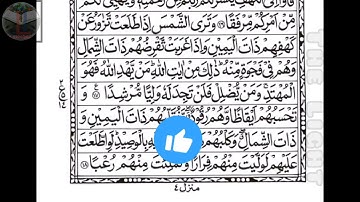 مِّنْ اَمْرِكُمْ مِّرْفَقًا ۝ وَتَرَى الشَّمْسَ اِذَا طَلَعَتْ تَّزٰوَرُ عَنْ
كَهْفِهِمْ ذَاتَ الْيَمِيْنِ وَاِذَا غَرَبَتْ تَّقْرِضُهُمْ ذَاتَ الشِّمَالِ
وَهُمْ فِيْ فَجْوَةٍ مِّنْهُ ؕ ذٰلِكَ مِنْ اٰيٰتِ اللّٰهِ ؕ مَنْ يَّهْدِ اللّٰهُ فَهُوَ
الْمُهْتَدِ ۚ وَمَنْ يُّضْلِلْ فَلَنْ تَجِدَ لَهٗ وَلِيًّا مُّرْشِدًا ۝
وَتَحْسَبُهُمْ اَيْقَاظًا وَّهُمْ رُقُوْدٌ ۖ وَّنُقَلِّبُهُمْ ذَاتَ الْيَمِيْنِ وَ
ذَاتَ الشِّمَالِ ۖ وَكَلْبُهُمْ بِالْوَصِيْدِ ؕ لَوِ اطَّلَعْتَ
عَلَيْهِمْ لَوَلَّيْتَ مِنْهُمْ فِرَارًا مِنْهُمْ رُعْبًا ۝۱۸
منزل ٤
THE LIGHT